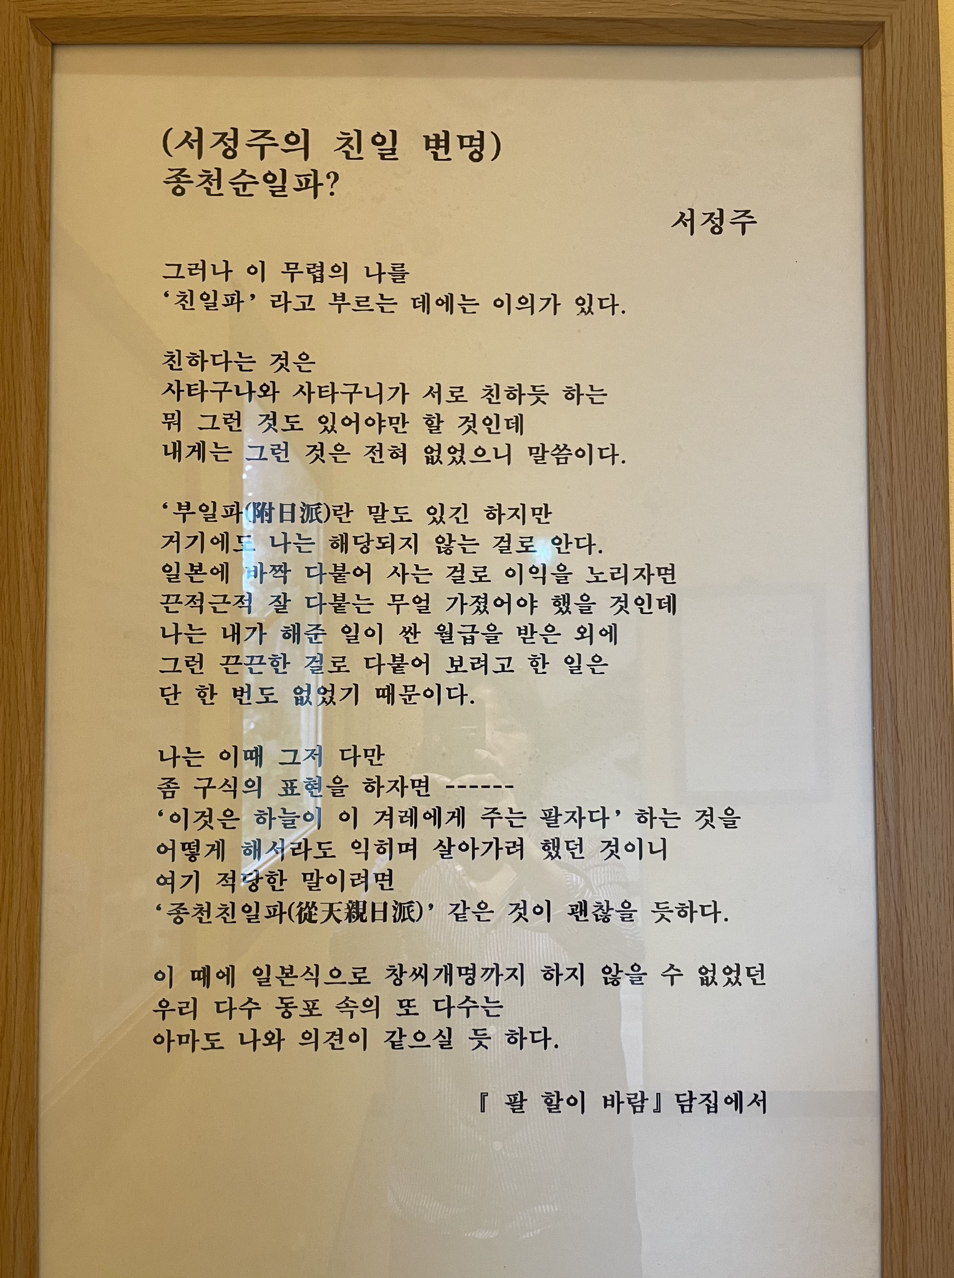 (서정주의 친일 변명)
종천순일파?
서정주
그러나 이 무렵의 나를
‘친일파’ 라고 부르는 데에는 이의가 있다.
친하다는 것은
사타구나와 사타구니가 서로 친하듯 하는
뭐 그런 것도 있어야만 할 것인데
내게는 그런 것은 전혀 없었으니 말씀이다.
‘부일파(附日派)란 말도 있긴 하지만
거기에도 나는 해당되지 않는 걸로 안다.
일본에 바짝 다붙어 사는 걸로 이익을 노리자면
끈적근적 잘 다붙는 무얼 가졌어야 했을 것인데
나는 내가 해준 일이 싼 월급을 받은 외에
그런 끈끈한 걸로 다붙어 보려고 한 일은
단 한 번도 없었기 때문이다.
나는 이때 그저 다만
좀 구식의 표현을 하자면 ------
‘이것은 하늘이 이 겨레에게 주는 팔자다’ 하는 것을
어떻게 해서라도 익히며 살아가려 했던 것이니
여기 적당한 말이려면
‘종천친일파(從天親日派)’ 같은 것이 괜찮을 듯하다.
이 때에 일본식으로 창씨개명까지 하지 않을 수 없었던
우리 다수 동포 속의 또 다수는
아마도 나와 의견이 같으실 듯 하다.
『 팔 할이 바람』담집에서